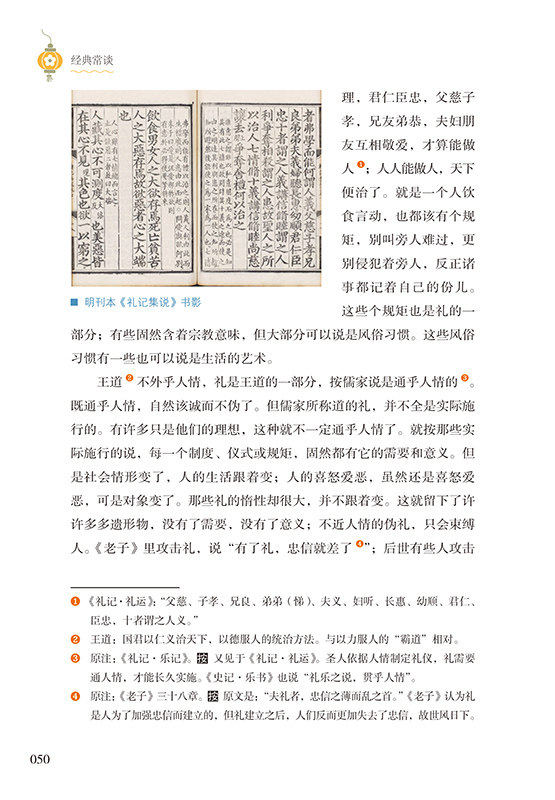 经典常谈
者弗學而能何謂人義父慈子孝兄
良弟弟夫義婦聽長惠幼順君仁臣
忠十者謂之人義講信脩睦謂之人
利爭奪相殺謂之人患故聖人之所
以治人七情脩十義講信脩睦尚慈
讓去爭奪舍禮何以治之
飲食男女人之大欲存焉死亡貧苦
人之大惡存焉故欲惡者心之大端
也
人藏其心不可測度也美惡皆
在其心不見其色也欲一以窮之
明刊本《礼记集说》书影
理，君仁臣忠，父慈子
孝，兄友弟恭，夫妇朋
友互相敬爱，才算能做
人❶；人人能做人，天下
便治了。就是一个人饮
食言动，也都该有个规
矩，别叫旁人难过，更
别侵犯着旁人，反正诸
事都记着自己的份儿。
这些个规矩也是礼的一
部分；有些固然含着宗教意味，但大部分可以说是风俗习惯。这些风俗
习惯有一些也可以说是生活的艺术。
王道❷不外乎人情，礼是王道的一部分，按儒家说是通乎人情的❸。
既通乎人情，自然该诚而不伪了。但儒家所称道的礼，并不全是实际施
行的。有许多只是他们的理想，这种就不一定通乎人情了。就按那些实
际施行的说，每一个制度、仪式或规矩，固然都有它的需要和意义。但
是社会情形变了，人的生活跟着变；人的喜怒爱恶，虽然还是喜怒爱
恶，可是对象变了。那些礼的惰性却很大，并不跟着变。这就留下了许
许多多遗形物，没有了需要，没有了意义；不近人情的伪礼，只会束缚
人。《老子》里攻击礼，说“有了礼，忠信就差了❹”；后世有些人攻击
❶ 《礼记·礼运》：“父慈、子孝、兄良、弟弟（悌）、夫义、妇听、长惠、幼顺、君仁、
臣忠，十者谓之人义。”
❷ 王道：国君以仁义治天下，以德服人的统治方法。与以力服人的“霸道”相对。
❸ 原注：《礼记·乐记》。按 又见于《礼记·礼运》。圣人依据人情制定礼仪，礼需要
通人情，才能长久实施。《史记·乐书》也说“礼乐之说，贯乎人情”。
❹ 原注：《老子》三十八章。按 原文是：“夫礼者，忠信之薄而乱之首。”《老子》认为礼
是人为了加强忠信而建立的，但礼建立之后，人们反而更加失去了忠信，故世风日下。
050